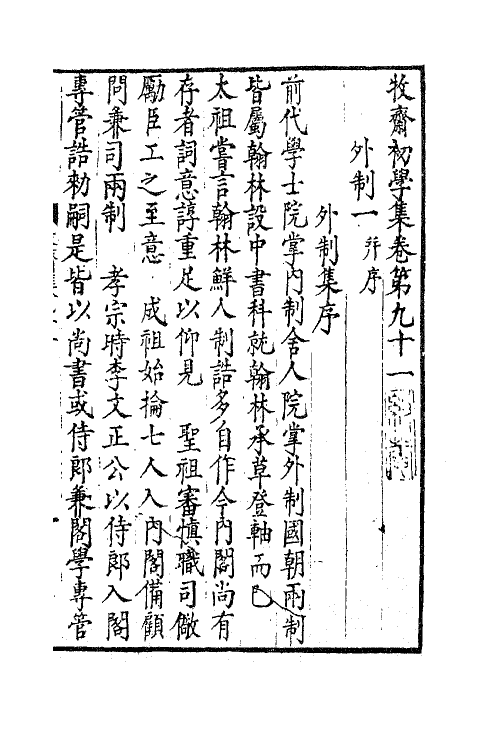 牧齋初學集卷第九十一
外制一 并序
外制集序
前代學士院掌內制舍人院掌外制國朝兩制
皆屬翰林設中書科就翰林承草登軸而已
太祖嘗言翰林鮮人制誥多自作今內閣尚有
存者詞意諄重足以仰見 聖祖審慎職司儆
勵臣工之至意 成祖始掄七人入內閣備顧
問兼司兩制 孝宗時李文正公以侍郎入閣
專管誥勑嗣是皆以尚書或侍郎兼閣學專管